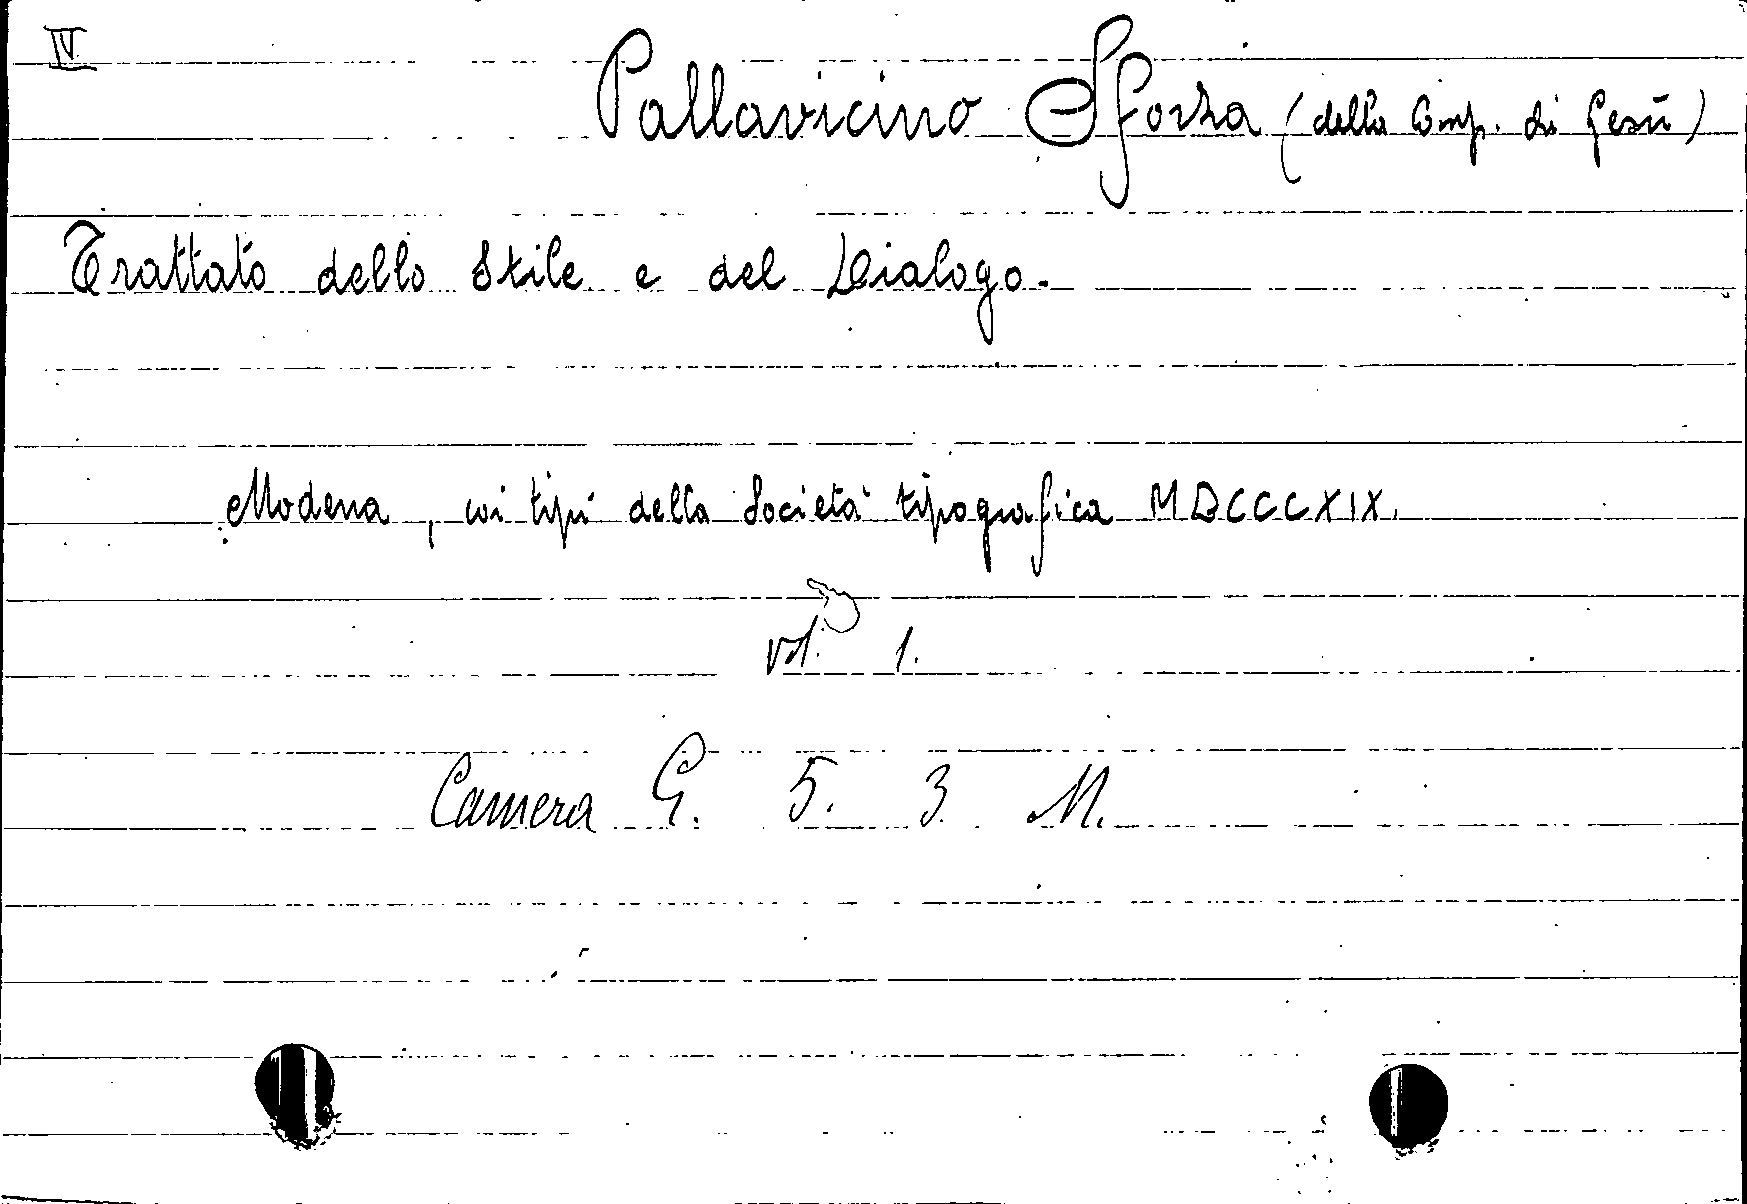 IV
Pallavicino Sforza (della Comp. di Gesù)
Trattato dello Stile e del Dialogo.
Modena, coi tipi della Società tipografica MDCCCXIX.
vol. 1.
Camera G. 5. 3 M.